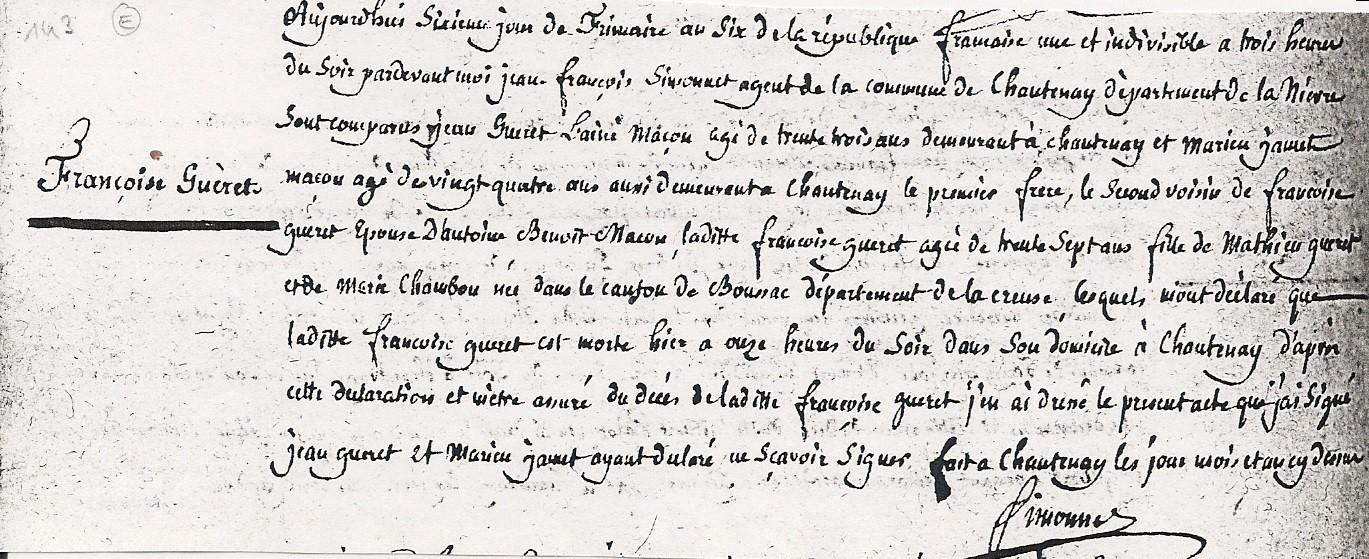 143 E
Aujourdhui Sixieme jour de Frimaire an Six de la république francaise une et indivisible a trois heures
du Soir pardevant moi jean françois Simonnet agent de la commune de Chantenay dèpartement de la Nievre
Sont comparus jean Gueret Lainé Maçon agé de trente trois ans demeurant à chantenay et Marien jamet
macon agé de vingt quatre ans aussi demeurant a Chantenay le premier frere, le Second voisin de francoise
gueret Epouse D'antoine Benoit Macon laditte francoise gueret agée de trente Sept ans fille de Mathieu gueret
et de Marie Chambon née dans le canton de Boussac département de la creuse lesquels m'ont déclaré que
laditte francoise gueret est morte hier a onze heures du Soir dans Son domicile à Chantenay d'aprés
cette declaration et m'etre assuré du décés de laditte francoise gueret j'en ai dressé le present acte que j'ai Signé
jean gueret et Marien jamet ayant declaré ne Sçavoir Signer fait a Chantenay les jour mois et an cy dessus
Françoise Guèret
Simonnet